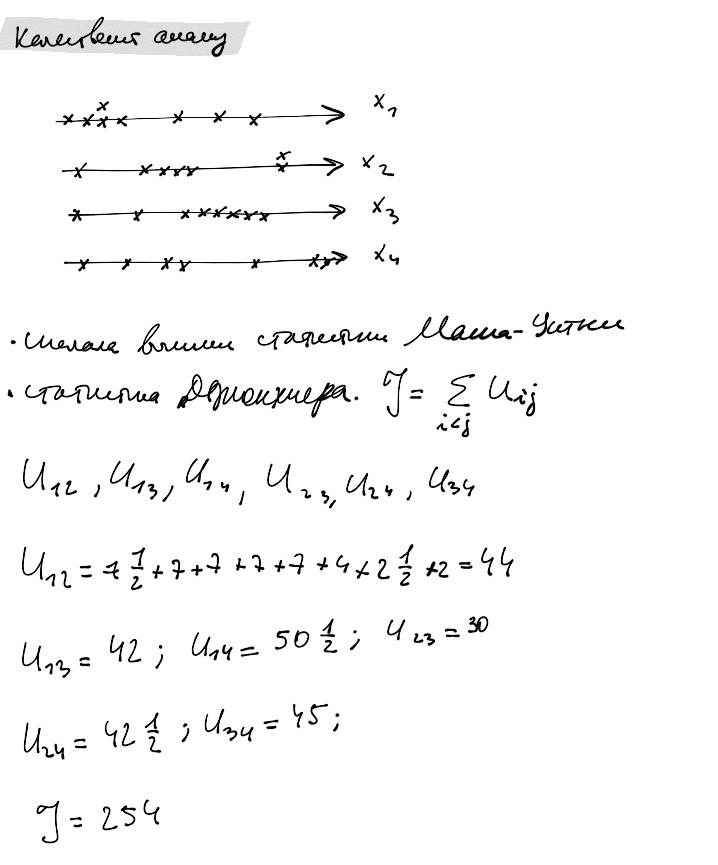 Качествен анализ
x₁
x₂
x₃
x₄
• статистики Манна-Уитни
• статистика Джонкхиера. J = Σ i<j Uij
U₁₂, U₁₃, U₁₄, U₂₃, U₂₄, U₃₄
U₁₂ = 7 1/2 + 7 + 7 + 7 + 7 + 4 + 2 1/2 + 2 = 44
U₁₃ = 42 ; U₁₄ = 50 1/2 ; U₂₃ = 30
U₂₄ = 42 1/2 ; U₃₄ = 45 ;
J = 254